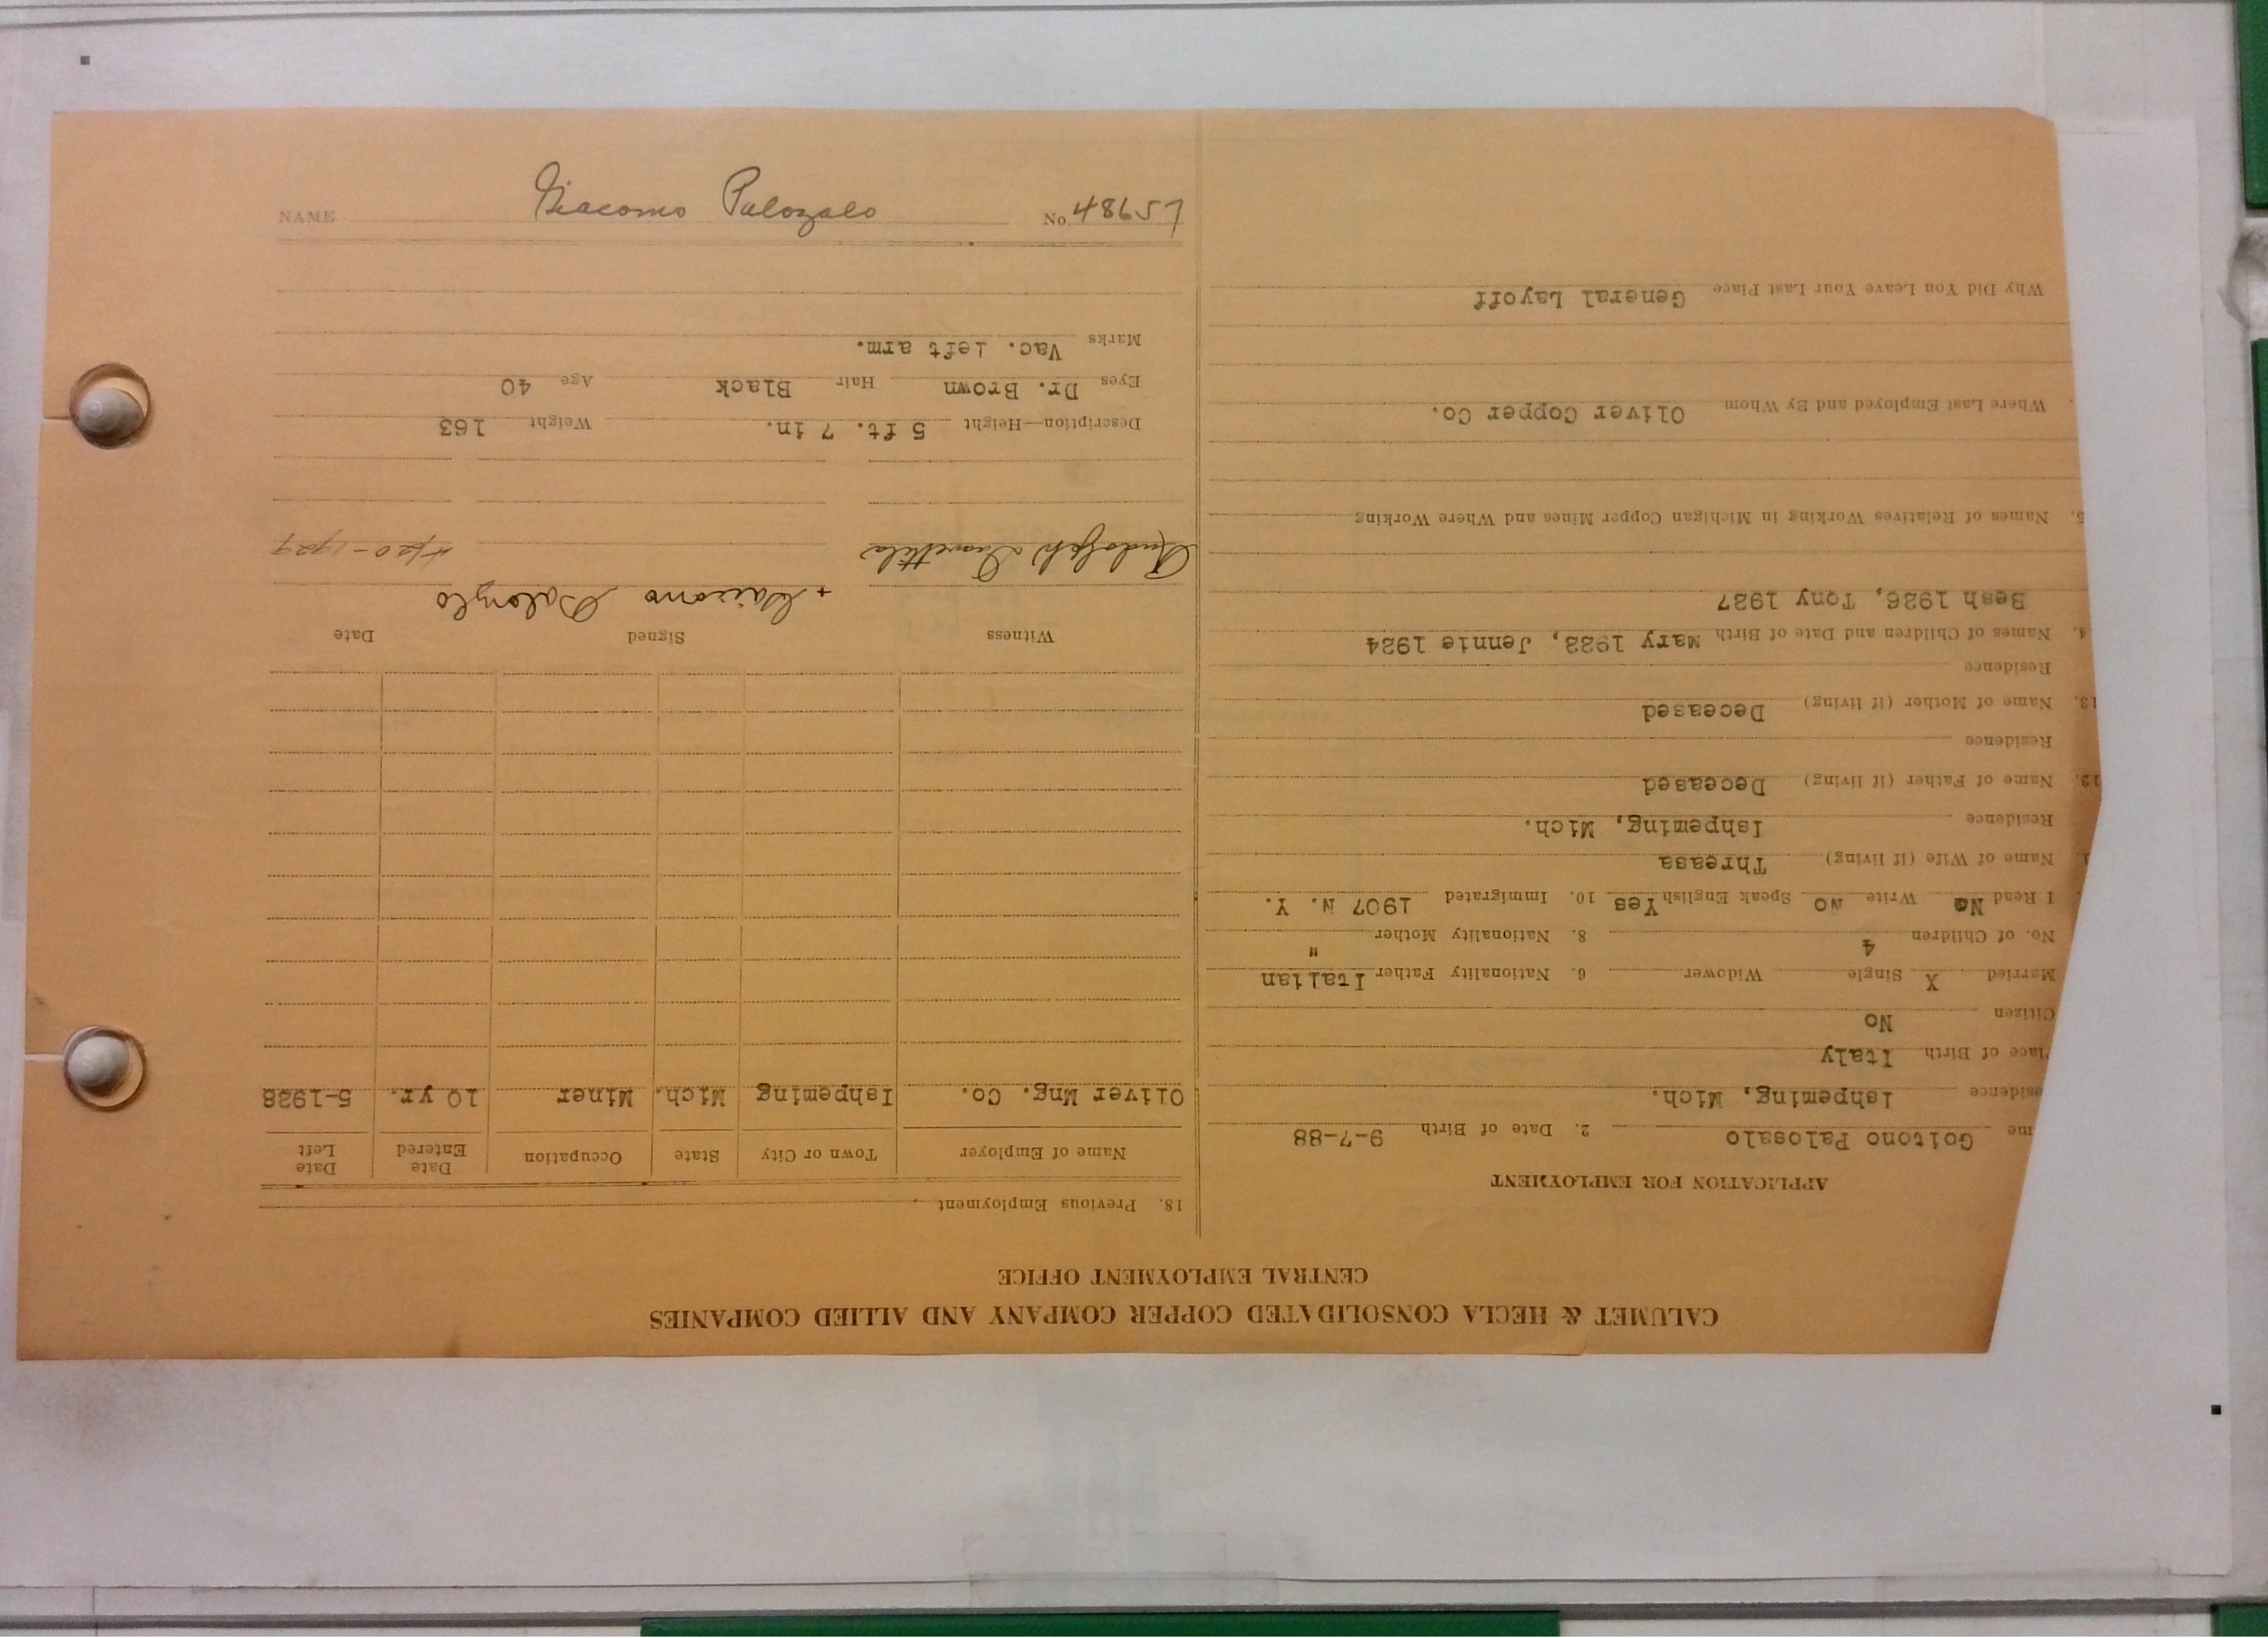 CALUMET & HECLA CONSOLIDATED COPPER COMPANY AND ALLIED COMPANIES
CENTRAL EMPLOYMENT OFFICE
APPLICATION FOR EMPLOYMENT
me Goitono Palosalo 2. Date of Birth 9-7-88
esidence Ishpeming, Mich.
lace of Birth Italy
Citizen No
Married X Single Widower 6. Nationality Father Italian
No. of Children 4 8. Nationality Mother "
I Read No Write No Speak English Yes 10. Immigrated 1907 N. Y.
1. Name of Wife (if living) Threasa
Residence Ishpeming, Mich.
12. Name of Father (if living) Deceased
Residence
13. Name of Mother (if living) Deceased
Residence
4. Names of Children and Date of Birth Mary 1922, Jennie 1924
Besh 1926, Tony 1927
5. Names of Relatives Working in Michigan Copper Mines and Where Working
. Where Last Employed and By Whom Oliver Copper Co.
Why Did You Leave Your Last Place General Layoff
18. Previous Employment
Name of Employer Town or City State Occupation Date Entered Date Left
Oliver Mng. Co. Ishpeming Mich. Miner 10 yr. 5-1928
Witness Signed Date
+ Palozlo
Rudolph 4/20-1929
Description—Height 5 ft. 7 in. Weight 163
Eyes Dr. Brown Hair Black Age 40
Marks Vac. left arm.
NAME Giacomo Palozalo No. 48657